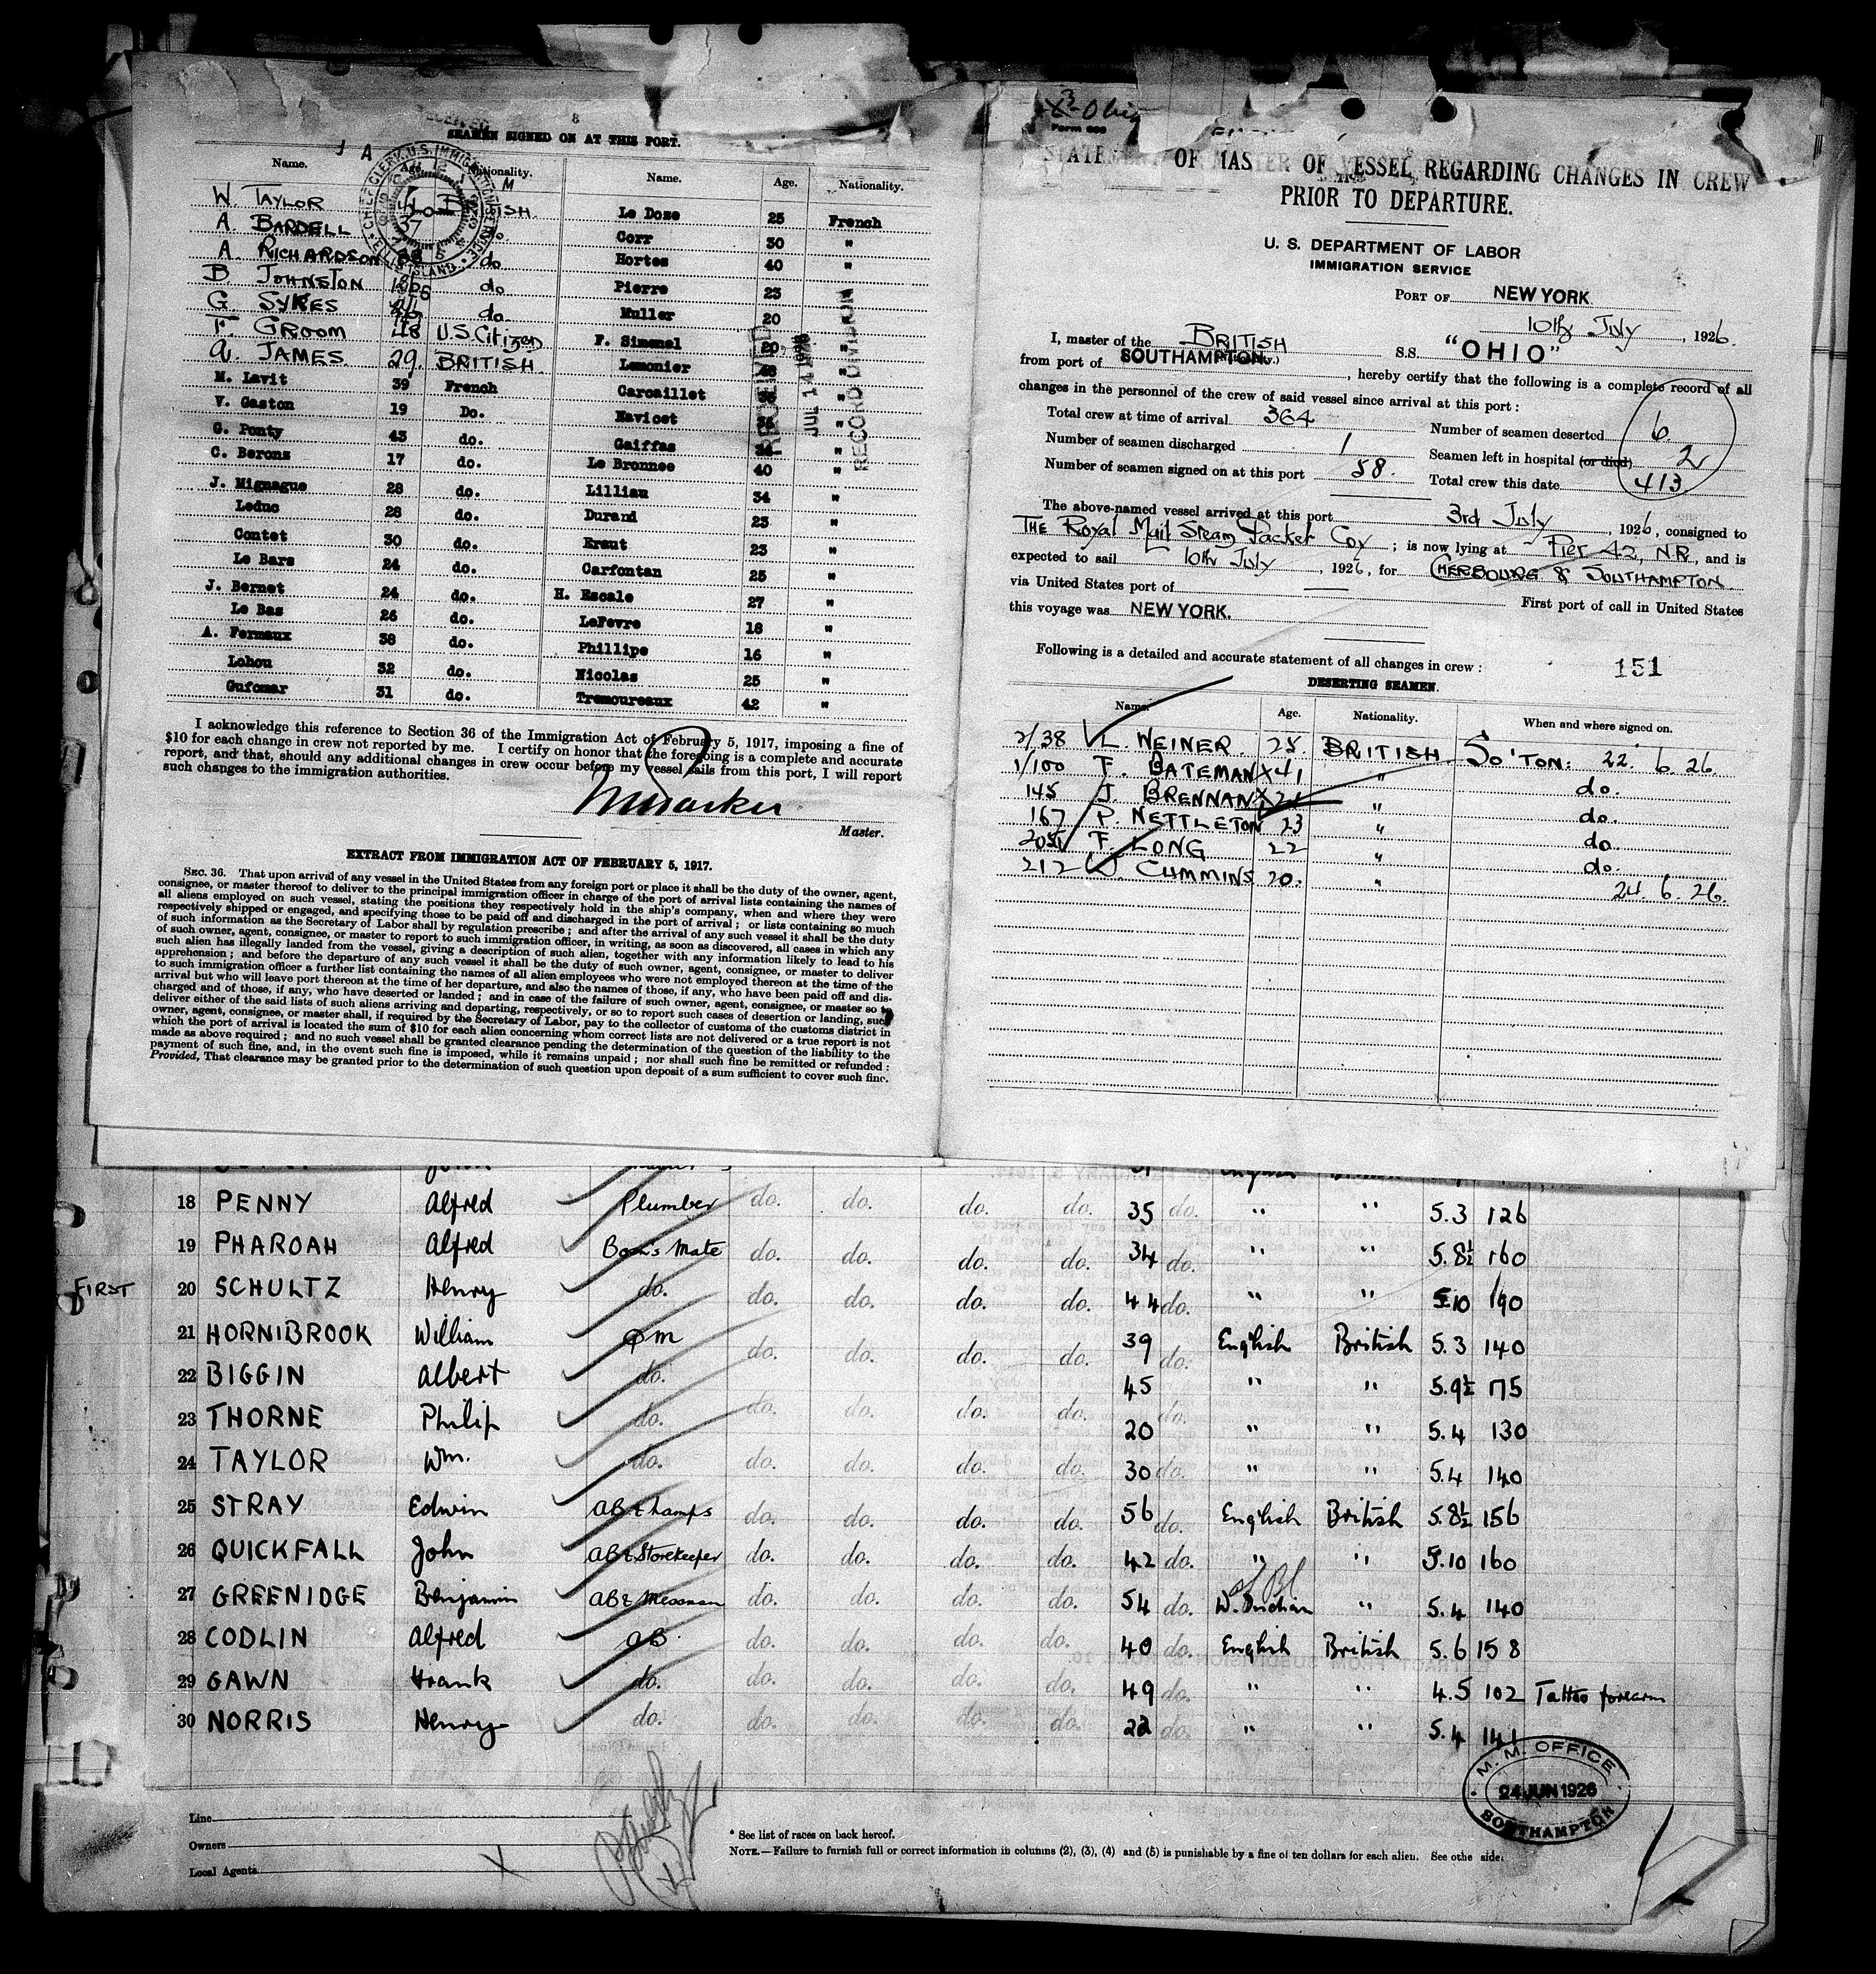 8
SEAMEN SIGNED ON AT THIS PORT.
Name. Age. Nationality. Name. Age. Nationality.
CHIEF CLERK, U.S. IMMIGRATION SERVICE
ELLIS ISLAND.
W. TAYLOR BRITISH. Le Doze 25 French
A. BARDELL 37 do. Corr 30 "
A. RICHARDSON do Hortes 40 "
B. JOHNSTON do Pierre 23 "
G. SYKES do. Muller 20 "
F. GROOM 48 U.S. Citizen F. Simonel 20 "
A. JAMES. 29. BRITISH. Lemonier "
M. Lavit 39 French Carcaillet "
V. Gaston 19 Do. Navicet "
G. Ponty 43 do. Gaiffas "
C. Berons 17 do. Le Bronnec 40 "
J. Mignague 28 do. Lilliau 34 "
Leduc 28 do. Durand 23 "
Contet 30 do. Eraut 23 "
Le Bars 24 do. Carfontan 25 "
J. Bernet 24 do. H. Escale 27 "
Le Bas 26 do. LeFevre 18 "
A. Fermaux 38 do. Phillipe 16 "
Lohou 32 do. Nicolas 25 "
Gufomar 31 do. Tremoureaux 42 "
RECEIVED
JUL 14 1926
RECORD DIVISION
I acknowledge this reference to Section 36 of the Immigration Act of February 5, 1917, imposing a fine of
$10 for each change in crew not reported by me. I certify on honor that the foregoing is a complete and accurate
report, and that, should any additional changes in crew occur before my vessel sails from this port, I will report
such changes to the immigration authorities.
Master.
EXTRACT FROM IMMIGRATION ACT OF FEBRUARY 5, 1917.
SEC. 36. That upon arrival of any vessel in the United States from any foreign port or place it shall be the duty of the owner, agent,
consignee, or master thereof to deliver to the principal immigration officer in charge of the port of arrival lists containing the names of
all aliens employed on such vessel, stating the positions they respectively hold in the ship's company, when and where they were
respectively shipped or engaged, and specifying those to be paid off and discharged in the port of arrival; or lists containing so much
of such information as the Secretary of Labor shall by regulation prescribe; and after the arrival of any such vessel it shall be the duty
of such owner, agent, consignee, or master to report to such immigration officer, in writing, as soon as discovered, all cases in which any
such alien has illegally landed from the vessel, giving a description of such alien, together with any information likely to lead to his
apprehension; and before the departure of any such vessel it shall be the duty of such owner, agent, consignee, or master to deliver
to such immigration officer a further list containing the names of all alien employees who were not employed thereon at the time of the
arrival but who will leave port thereon at the time of her departure, and also the names of those, if any, who have been paid off and dis-
charged and of those, if any, who have deserted or landed; and in case of the failure of such owner, agent, consignee, or master so to
deliver either of the said lists of such aliens arriving and departing, respectively, or so to report such cases of desertion or landing, such
owner, agent, consignee, or master shall, if required by the Secretary of Labor, pay to the collector of customs of the customs district in
which the port of arrival is located the sum of $10 for each alien concerning whom correct lists are not delivered or a true report is not
made as above required; and no such vessel shall be granted clearance pending the determination of the question of the liability to the
payment of such fine, and, in the event such fine is imposed, while it remains unpaid; nor shall such fine be remitted or refunded:
Provided, That clearance may be granted prior to the determination of such question upon deposit of a sum sufficient to cover such fine.
Ohio
Form 689
STATEMENT OF MASTER OF VESSEL REGARDING CHANGES IN CREW
PRIOR TO DEPARTURE.
U. S. DEPARTMENT OF LABOR
IMMIGRATION SERVICE
PORT OF NEW YORK
10th July, 1926.
I, master of the BRITISH S.S. "OHIO"
from port of SOUTHAMPTON, hereby certify that the following is a complete record of all
changes in the personnel of the crew of said vessel since arrival at this port:
Total crew at time of arrival 364 Number of seamen deserted 6
Number of seamen discharged 1 Seamen left in hospital (or died) 2
Number of seamen signed on at this port 58. Total crew this date 413
The above-named vessel arrived at this port 3rd July, 1926, consigned to
THE Royal Mail Steam Packet Coy; is now lying at Pier 42, N.R, and is
expected to sail 10th July, 1926, for CHERBOURG & SOUTHAMPTON.
via United States port of First port of call in United States
this voyage was NEW YORK.
Following is a detailed and accurate statement of all changes in crew:
151
DESERTING SEAMEN.
Name. Age. Nationality. When and where signed on.
2/38 L. WEINER. 25. BRITISH So'TON: 22. 6. 26.
1/100 F. BATEMAN X 41 " do.
145 J. BRENNAN X 21 " do.
167 P. NETTLETON 23 " do
205 F. LONG 22 " do.
212 W. CUMMINS 20. " 24. 6. 26.
18 PENNY Alfred Plumber do. do. do. do. 35 do. " " 5.3 126
19 PHAROAH Alfred Bosn's Mate do. do. do. do. 34 do. " " 5.8½ 160
FIRST 20 SCHULTZ Henry do. do. do. do. do. 44 do. " " 5.10 190
21 HORNIBROOK William QM do. do. do. do. 39 do. English British 5.3 140
22 BIGGIN Albert do. 45 " " 5.9½ 175
23 THORNE Philip do. do. do. do. do. 20 do. " " 5.4 130
24 TAYLOR Wm. do. do. do. do. do. 30 do. " " 5.4 140
25 STRAY Edwin AB & Lamps do. do. do. do. 56 do. English British 5.8½ 156
26 QUICKFALL John AB & Storekeeper do. do. do. do. 42 do. " " 5.10 160
27 GREENIDGE Benjamin AB & Messman do. do. do. do. 54 do. W. Indian " 5.4 140
28 CODLIN Alfred AB. do. do. do. do. 40 do. English British 5.6 158
29 GAWN Frank do. do. do. do. do. 49 do. " " 4.5 102 Tattoo forearm
30 NORRIS Henry do. do. do. do. do. 22 do. " " 5.4 141
M. M. OFFICE
24 JUN 1926
SOUTHAMPTON
Line
Owners
Local Agents
* See list of races on back hereof.
NOTE.—Failure to furnish full or correct information in columns (2), (3), (4) and (5) is punishable by a fine of ten dollars for each alien. See othe side.